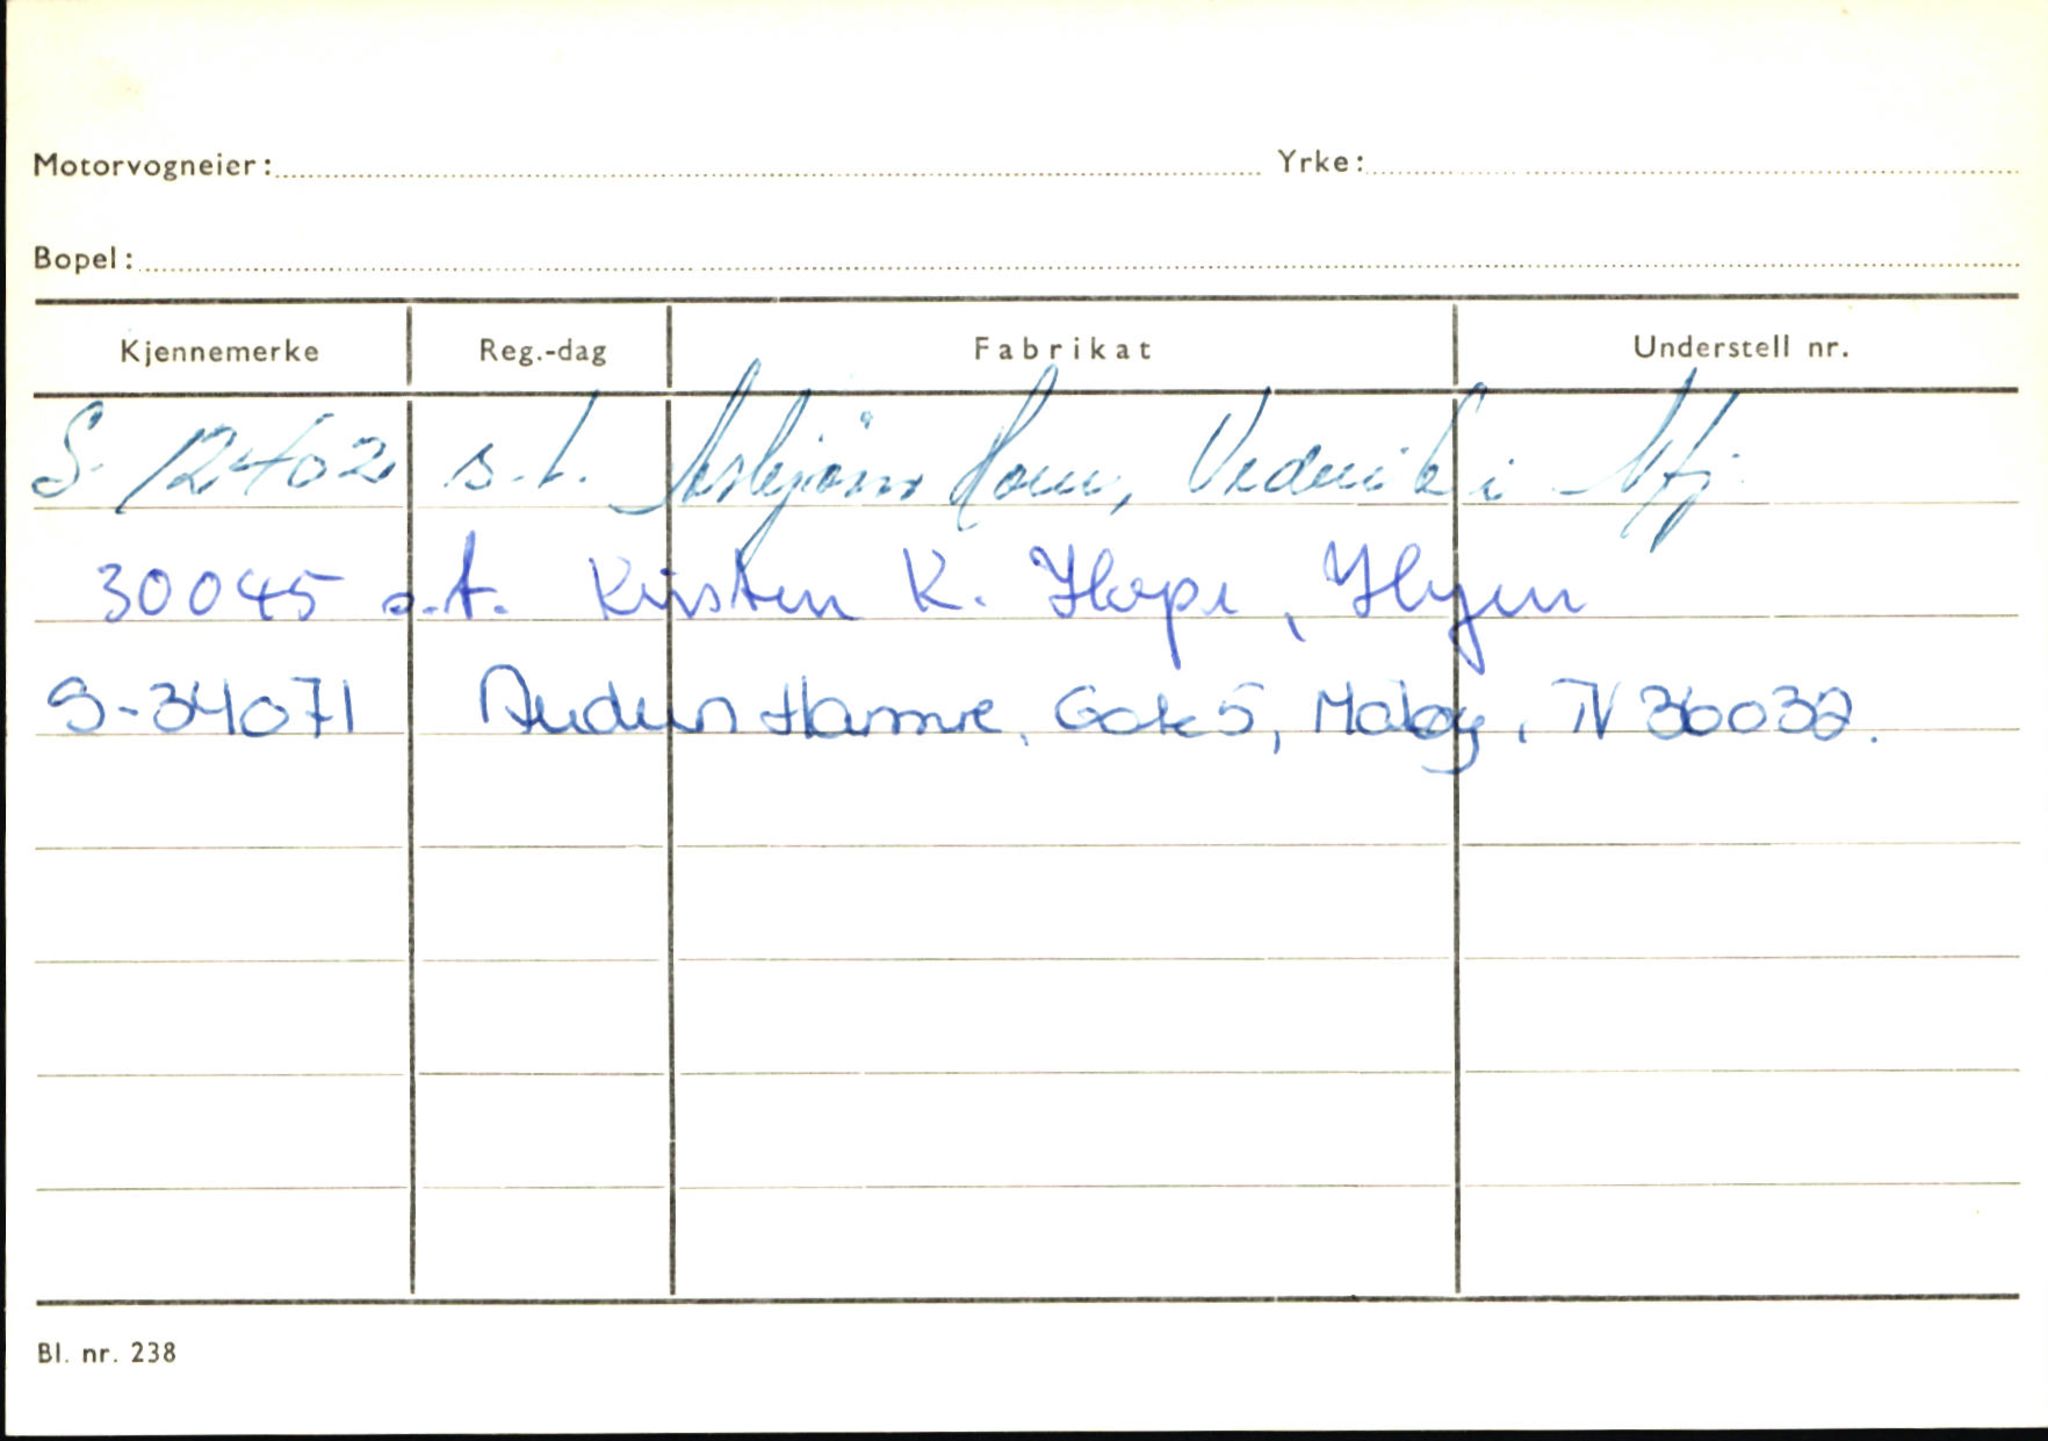 Motorvogneier: Yrke:
Bopel:
Kjennemerke Reg.-dag Fabrikat Understell nr.
S-12402 s.t. Asbjørn Vedvik i
30045 s.t. Kirsten K. Hope, Hyen
S-34071 Anders Hamre, Gate 5, Måløy, TV 36032.
Bl. nr. 238